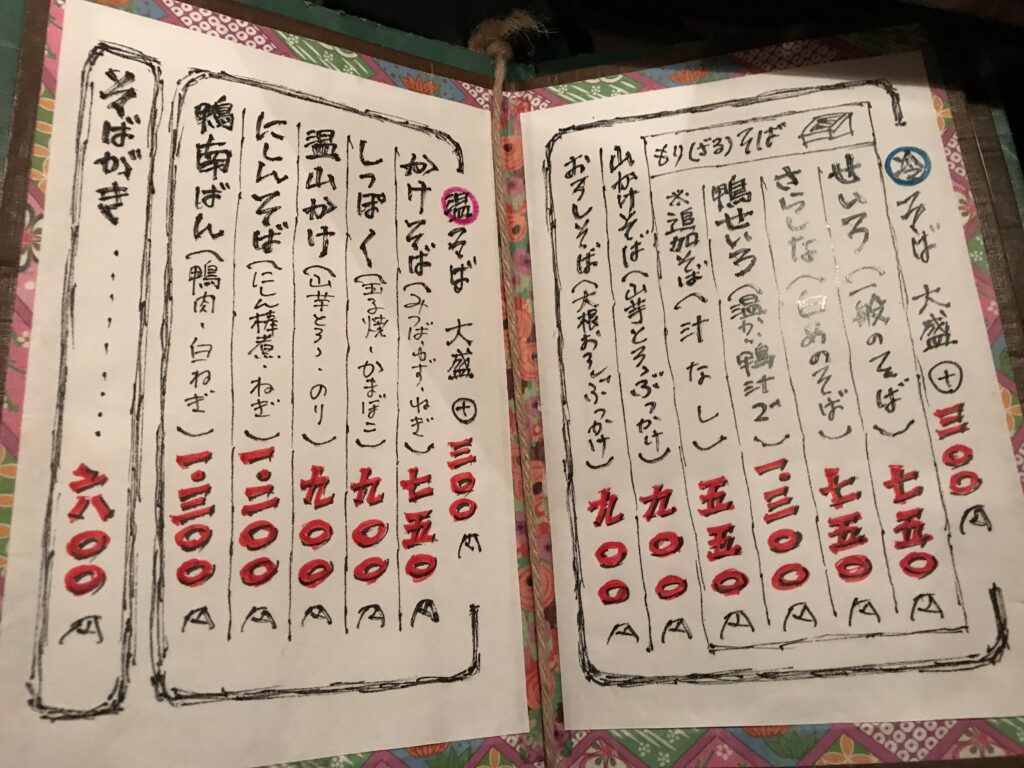 冷そば 大盛⊕三〇〇円
もり(ざる)そば
せいろ(一般のそば)七五〇円
さらしな(白めのそば)七五〇円
鴨せいろ(温かい鴨汁で)一.三〇〇円
※追加そば(汁なし)五五〇円
山かけそば(山芋とろろぶっかけ)九〇〇円
おろしそば(大根おろしぶっかけ)九〇〇円
温そば 大盛⊕三〇〇円
かけそば(みつば・ゆず・ねぎ)七五〇円
しっぽく(玉子焼・かまぼこ)九〇〇円
温山かけ(山芋とろろ・のり)九〇〇円
にしんそば(にしん棒煮・ねぎ)一.二〇〇円
鴨南ばん(鴨肉・白ねぎ)一.三〇〇円
そばがき・・・・・・・・・・八〇〇円